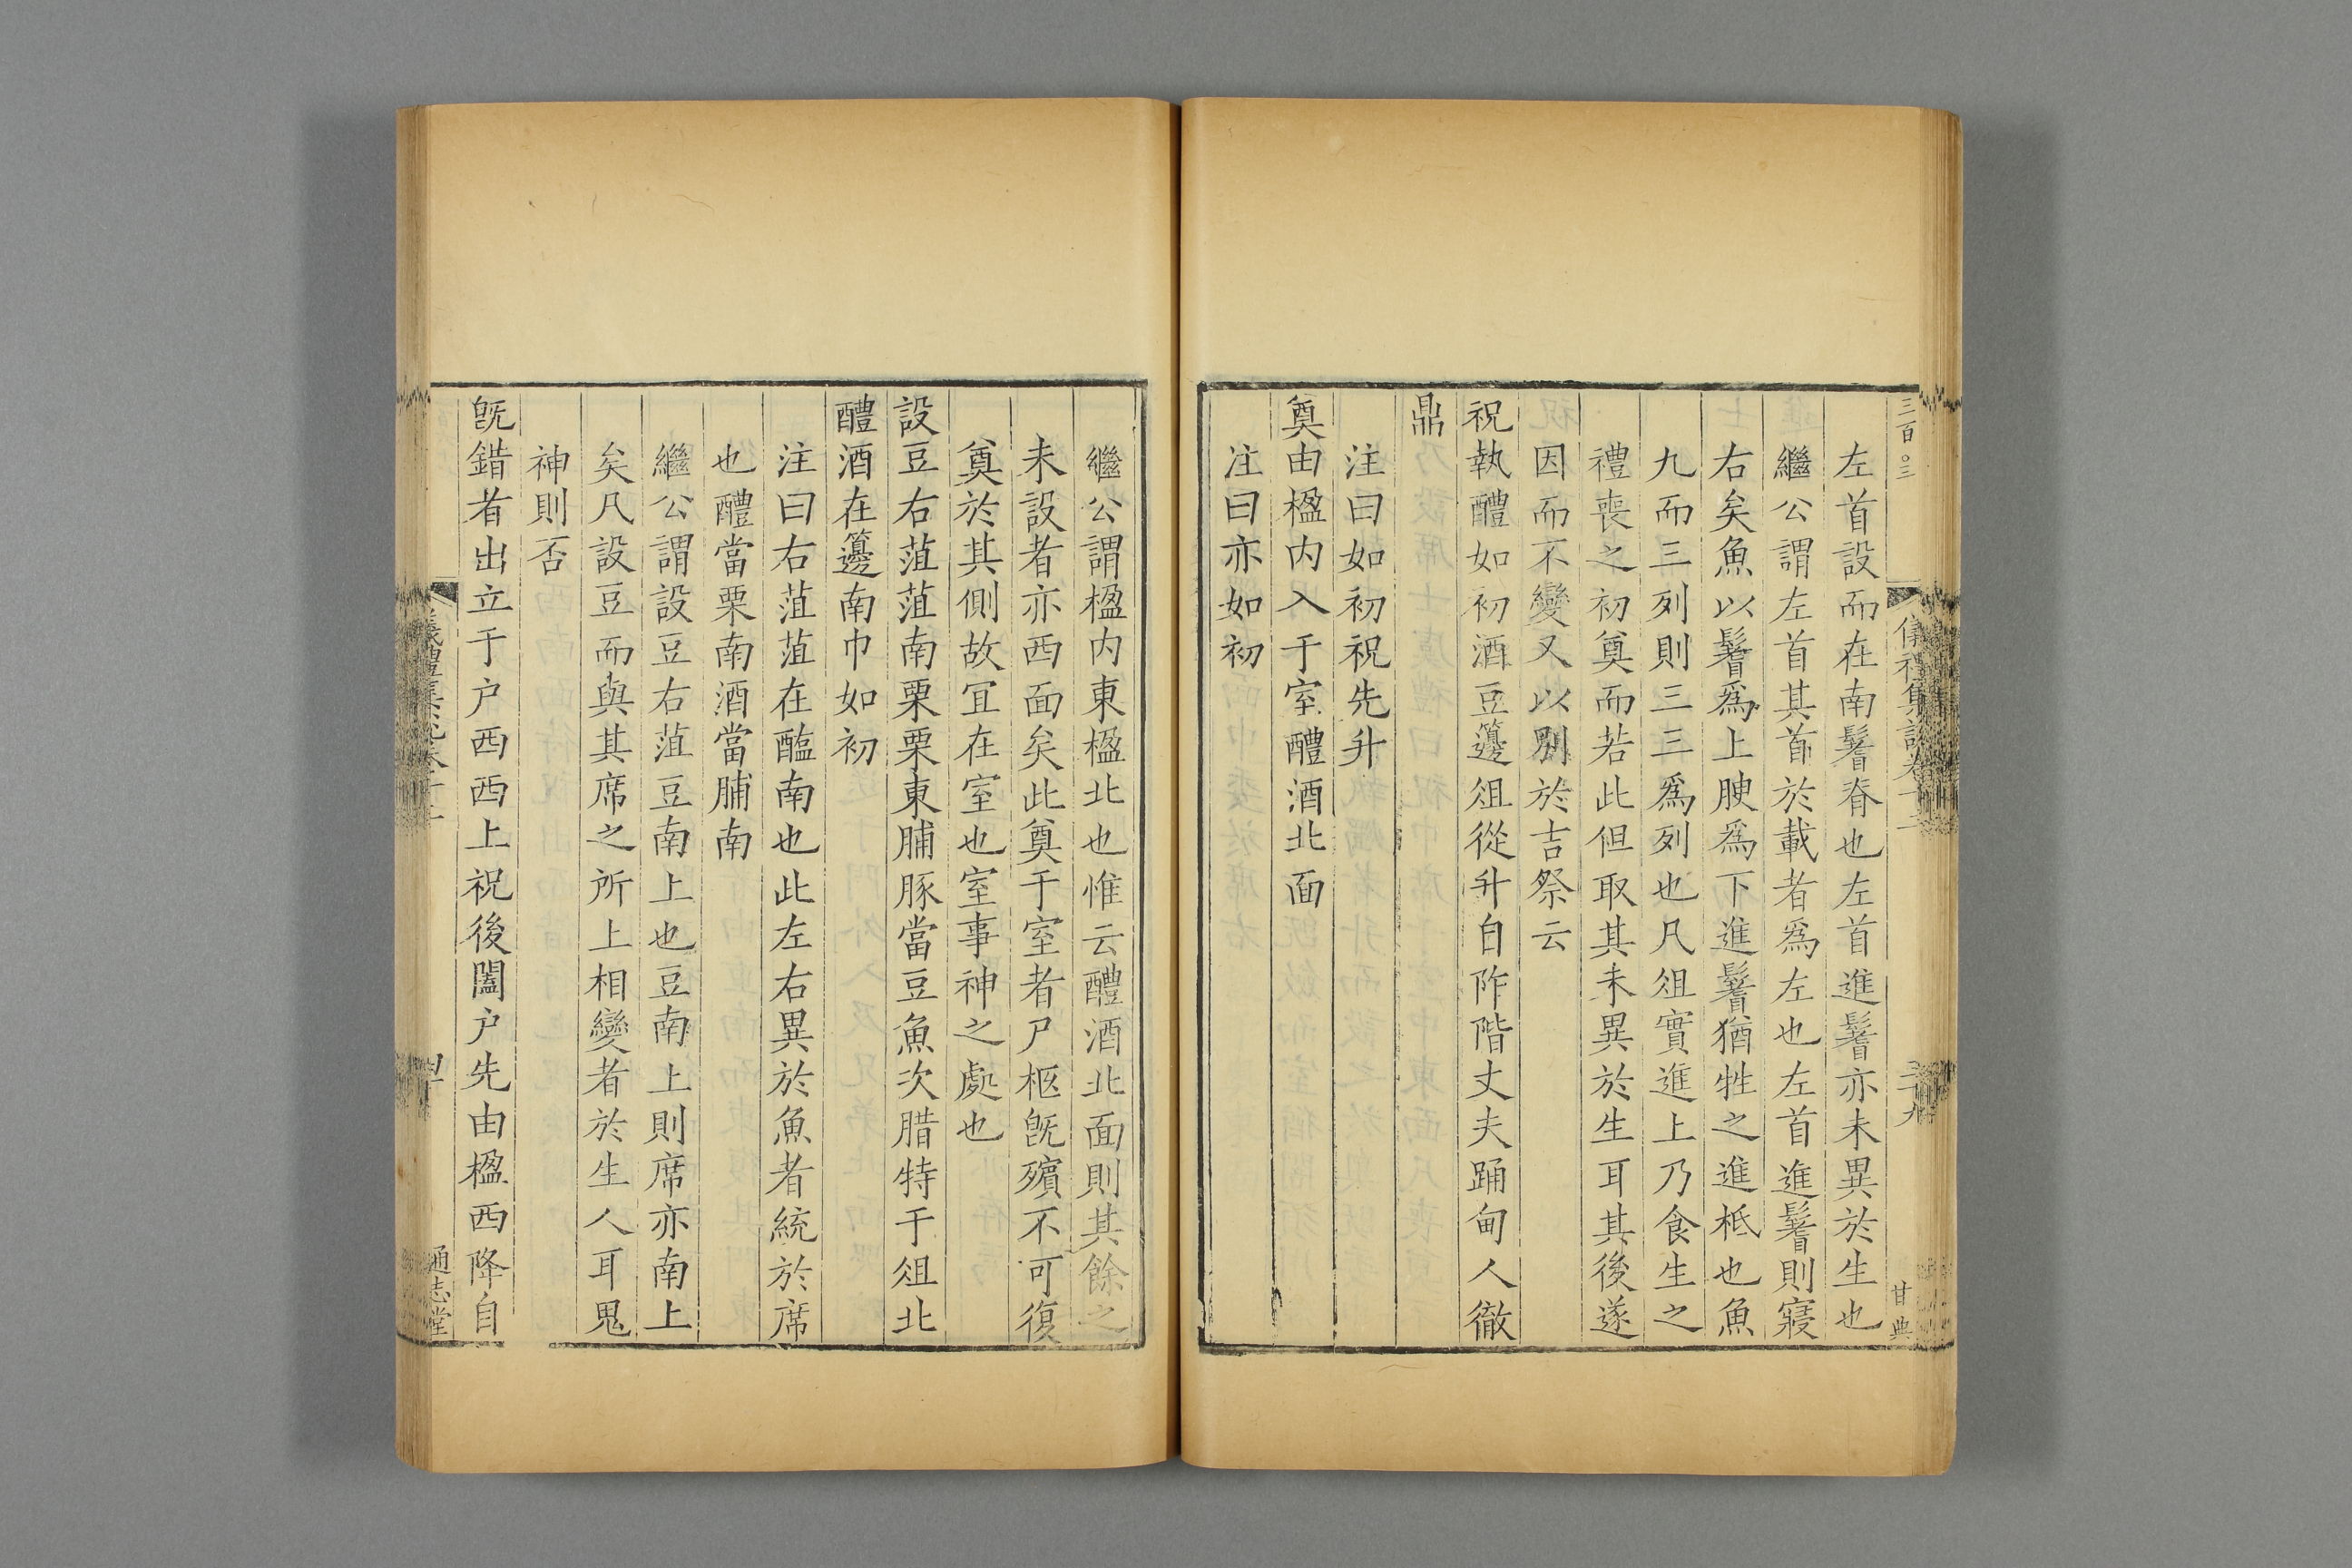 三百〇三
儀禮集說卷十二
二十九
甘典
左首設而在南鬐脊也左首進鬐亦未異於生也
繼公謂左首其首於載者爲左也左首進鬐則寢
右矣魚以鬐爲上腴爲下進鬐猶牲之進柢也魚
九而三列則三三爲列也凡俎實進上乃食生之
禮喪之初奠而若此但取其未異於生耳其後遂
因而不變又以別於吉祭云
祝執醴如初酒豆籩俎從升自阼階丈夫踊甸人徹
鼎
注曰如初祝先升
奠由楹内入于室醴酒北面
注曰亦如初
繼公謂楹内東楹北也惟云醴酒北面則其餘之
未設者亦西面矣此奠于室者尸柩旣殯不可復
奠於其側故宜在室也室事神之處也
設豆右菹菹南栗栗東脯豚當豆魚次腊特于俎北
醴酒在籩南巾如初
注曰右菹菹在醢南也此左右異於魚者統於席
也醴當栗南酒當脯南
繼公謂設豆右菹豆南上也豆南上則席亦南上
矣凡設豆而與其席之所上相變者於生人耳鬼
神則否
旣錯者出立于户西西上祝後闔户先由楹西降自
儀禮集說卷十二
通志堂